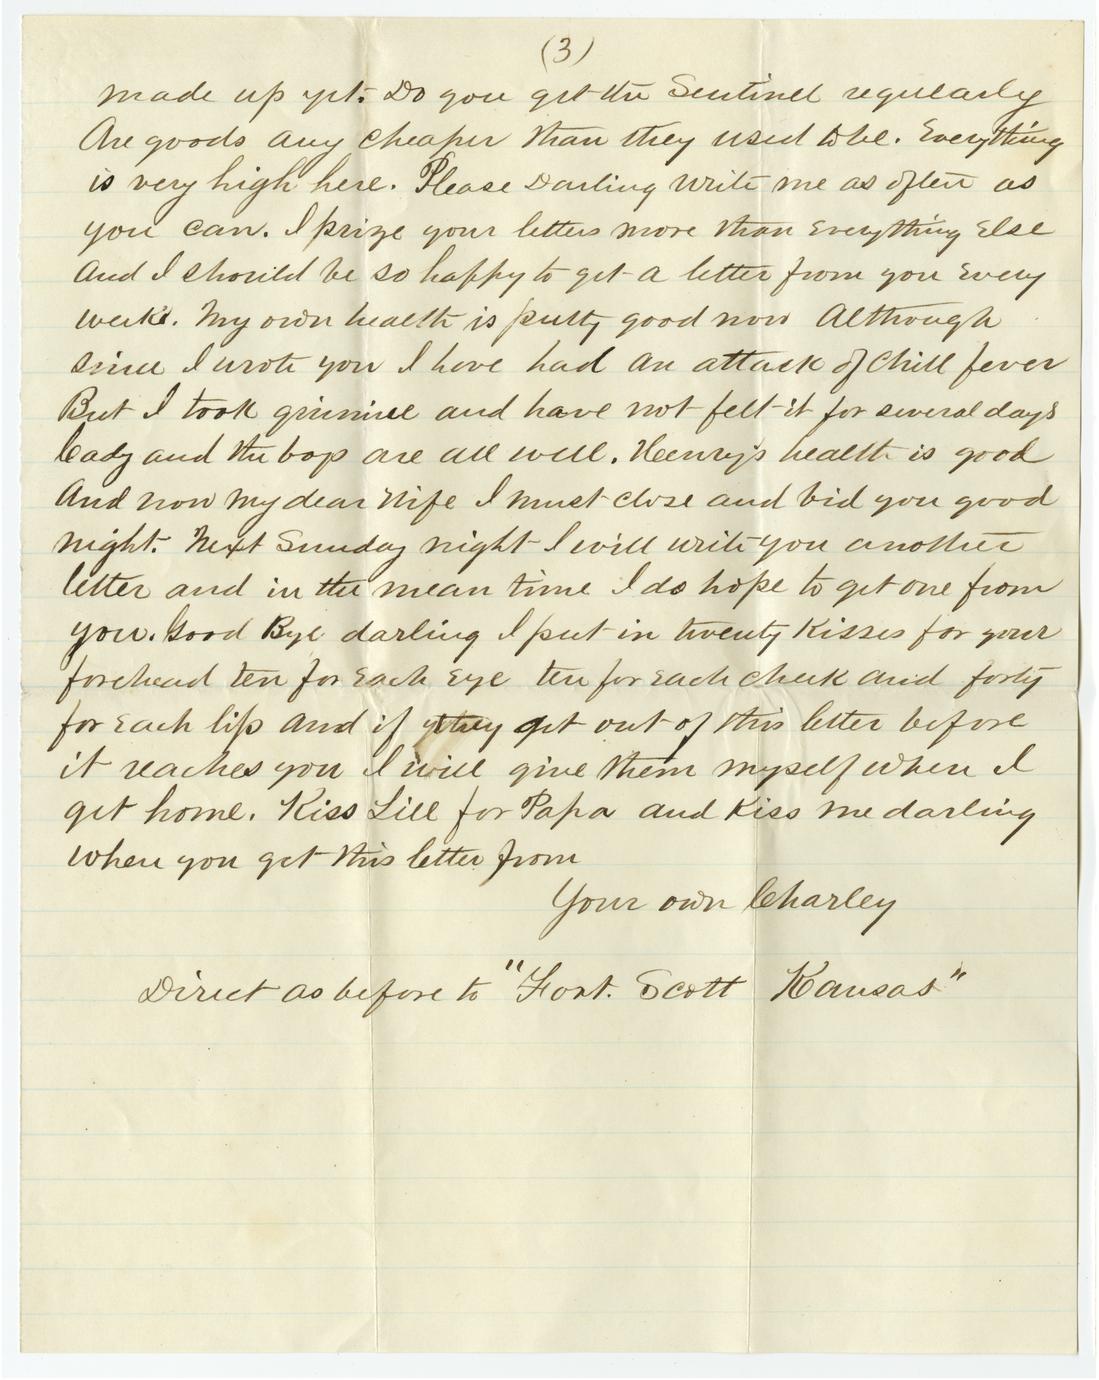 (3)
made up yet. Do you get the Sentinel regularly
Are goods any cheaper than they used to be. Everything
is very high here. Please Darling write me as often as
you can. I prize your letters more than Everything Else
And I should be so happy to get a letter from you Every
week. My own health is pretty good now Although
since I wrote you I have had an attack of Chill fever
But I took quinine and have not felt it for several days
Cady and the boys are all well. Henry's health is good
And now my dear Wife I must close and bid you good
night. Next Sunday night I will write you another
letter and in the mean time I do hope to get one from
you. Good Bye darling I put in twenty Kisses for your
forehead ten for Each Eye ten for Each cheek and forty
for Each lip and if they get out of this letter before
it reaches you I will give them myself when I
get home. Kiss Lill for Papa and Kiss me darling
when you get this letter from
Your own Charley
Direct as before to "Fort. Scott Kansas"